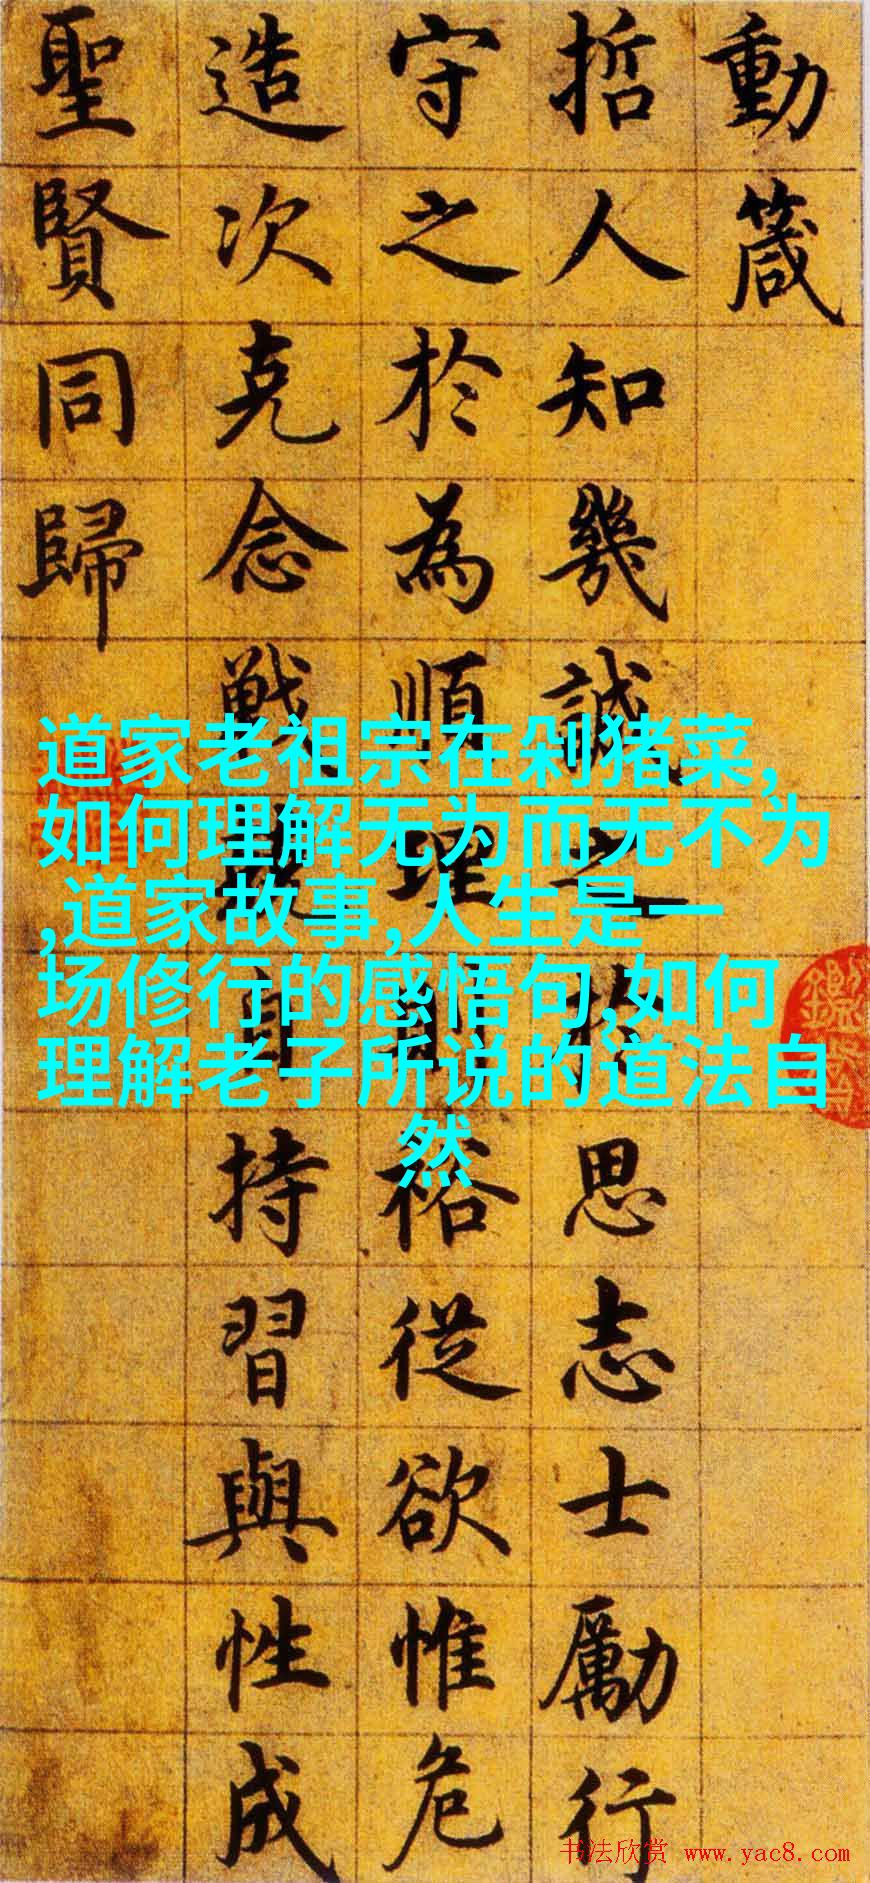 動箴
哲人知幾誠之於思志士勵行
守之於為順理則裕從欲惟危
造次克念戰兢自持習與性成
聖賢同歸
道家老祖宗在剁猪菜,
如何理解无为而无不为
,道家故事,人生是一
场修行的感悟句,如何
理解老子所说的道法自
然
书法欣赏 www.yac8.com